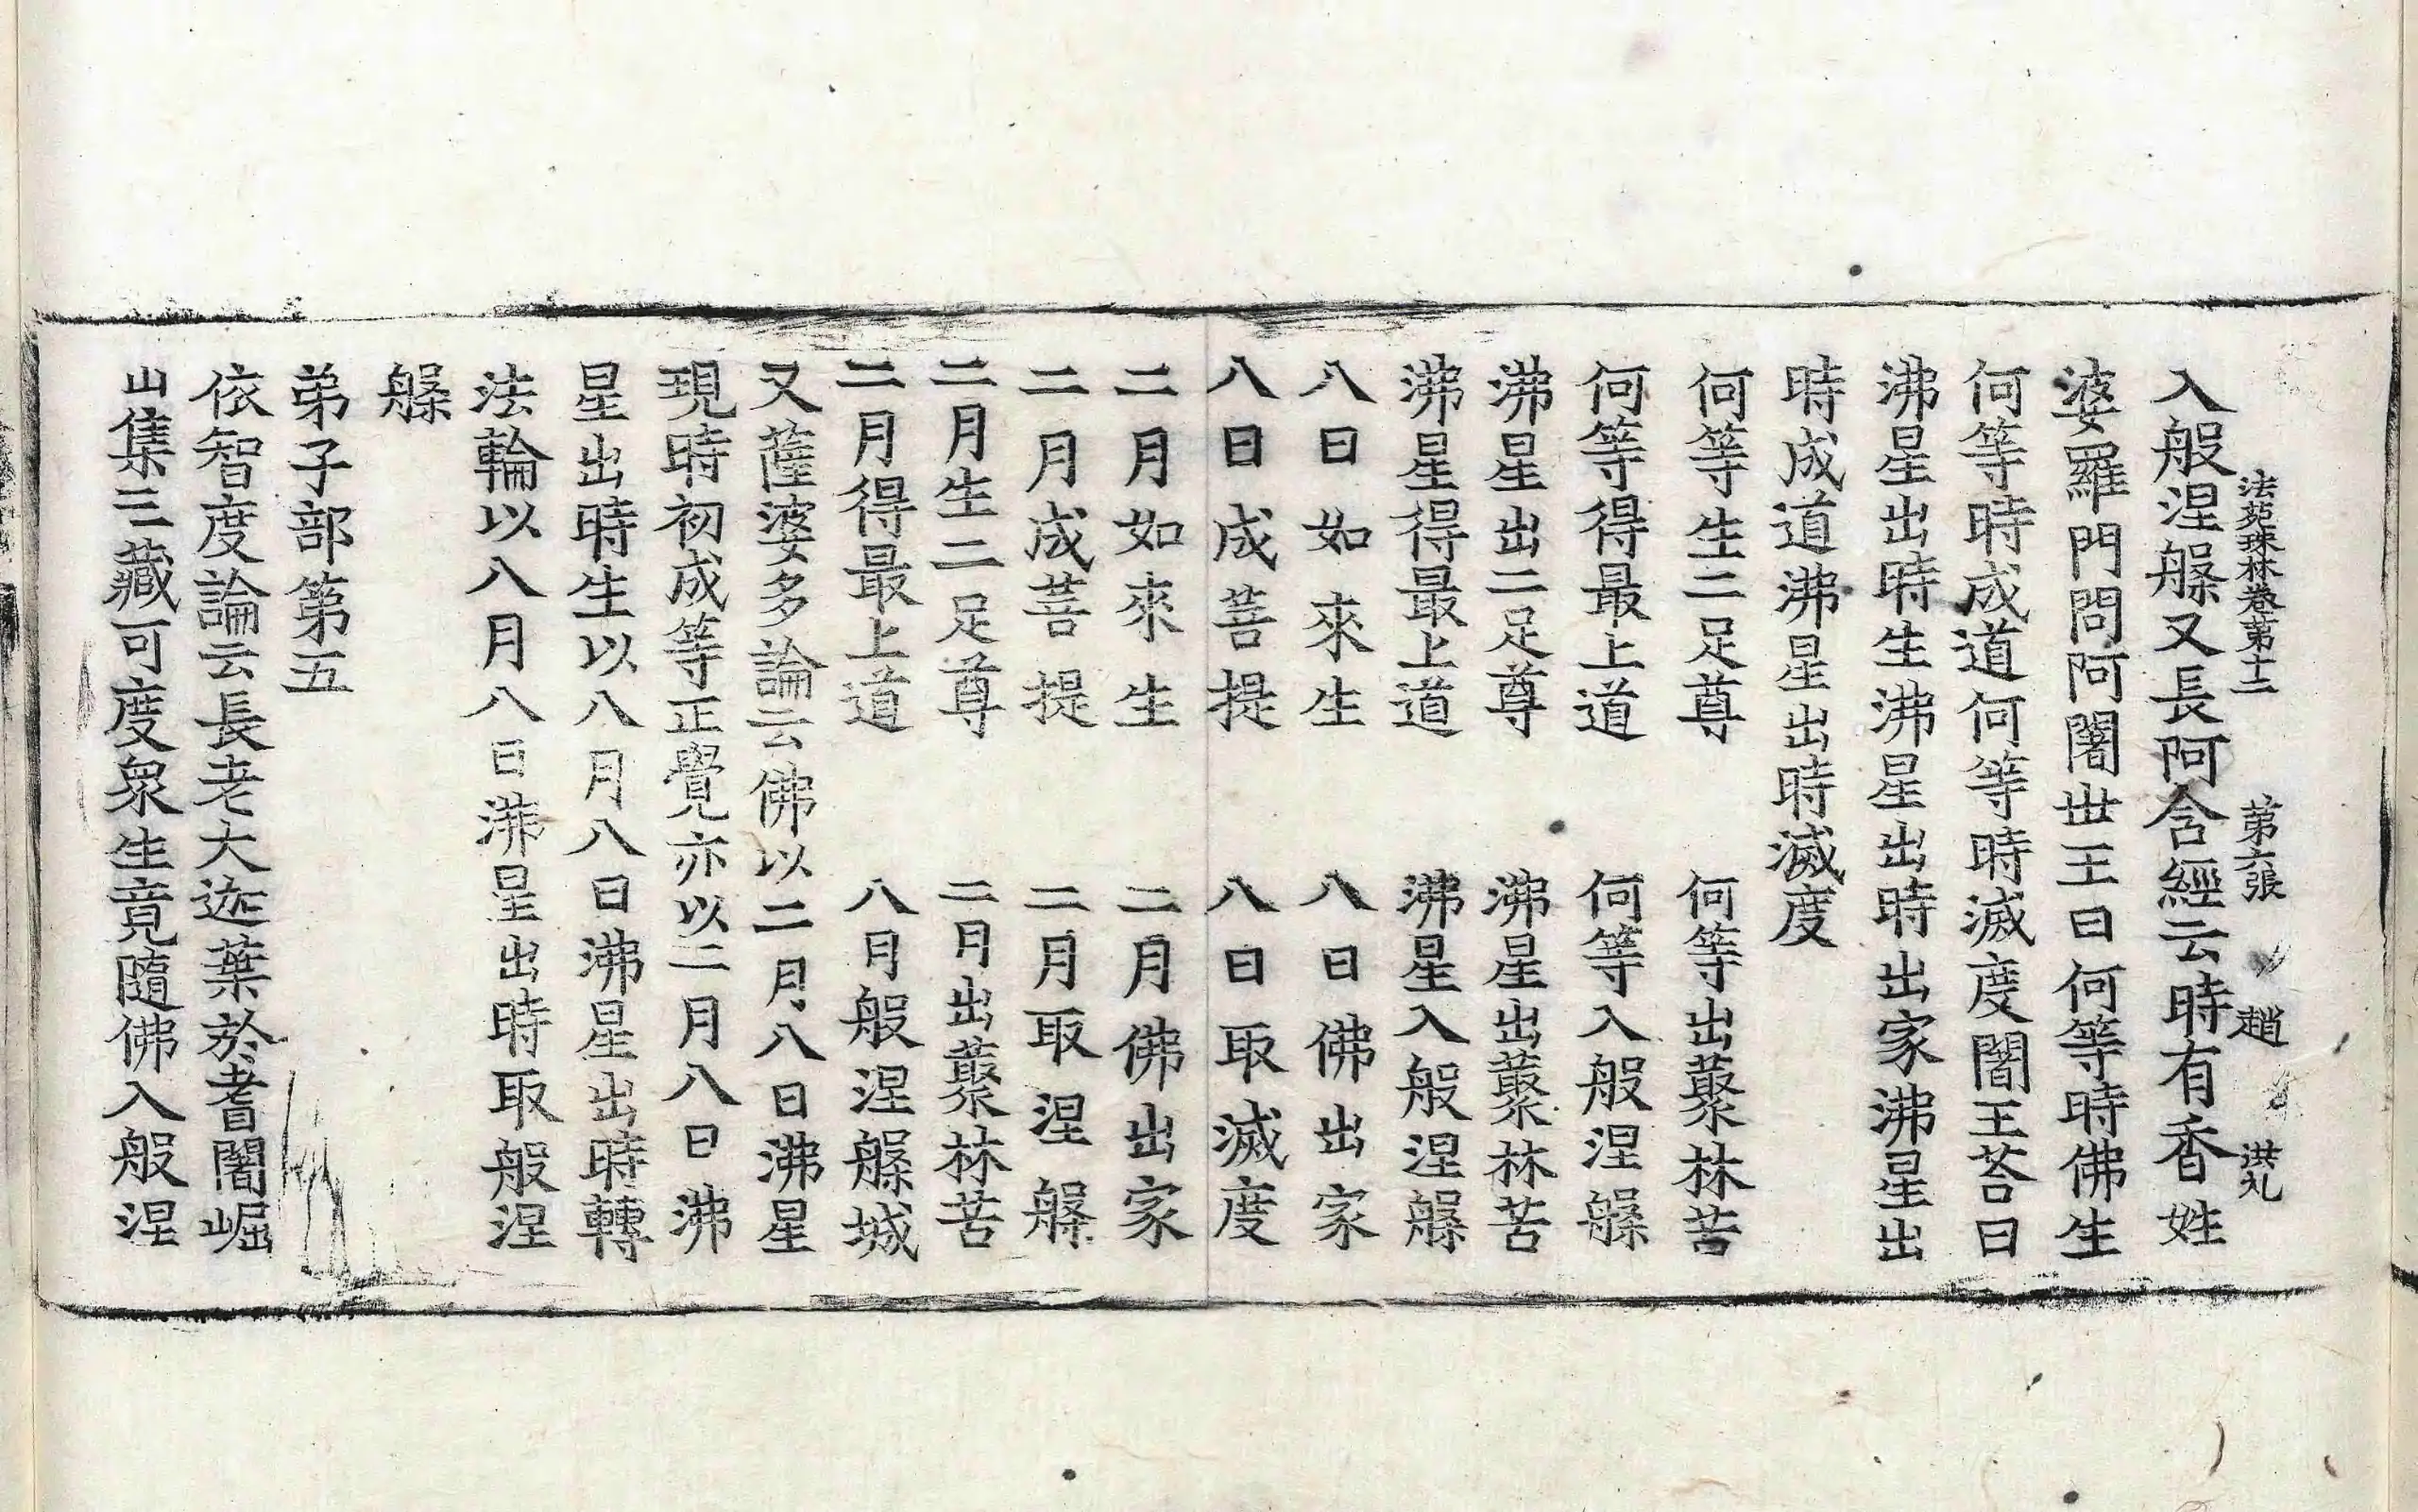 法苑珠林卷第十二 第六張 趙 洪九
入般涅槃又長阿含經云時有香姓
婆羅門問阿闍世王曰何等時佛生
何等時成道何等時滅度闍王荅曰
沸星出時生沸星出時出家沸星出
時成道沸星出時滅度
何等生二足尊 何等出藂林苦
何等得最上道 何等入般涅槃
沸星出二足尊 沸星出藂林苦
沸星得最上道 沸星入般涅槃
八日如來生 八日佛出家
八日成菩提 八日取滅度
二月如來生 二月佛出家
二月成菩提 二月取涅槃
二月生二足尊 二月出藂林苦
二月得最上道 八月般涅槃城
又薩婆多論云佛以二月八日沸星
現時初成等正覺亦以二月八日沸
星出時生以八月八日沸星出時轉
法輪以八月八日沸星出時取般涅
槃
弟子部第五
依智度論云長老大迦葉於耆闍崛
山集三藏可度衆生竟隨佛入般涅